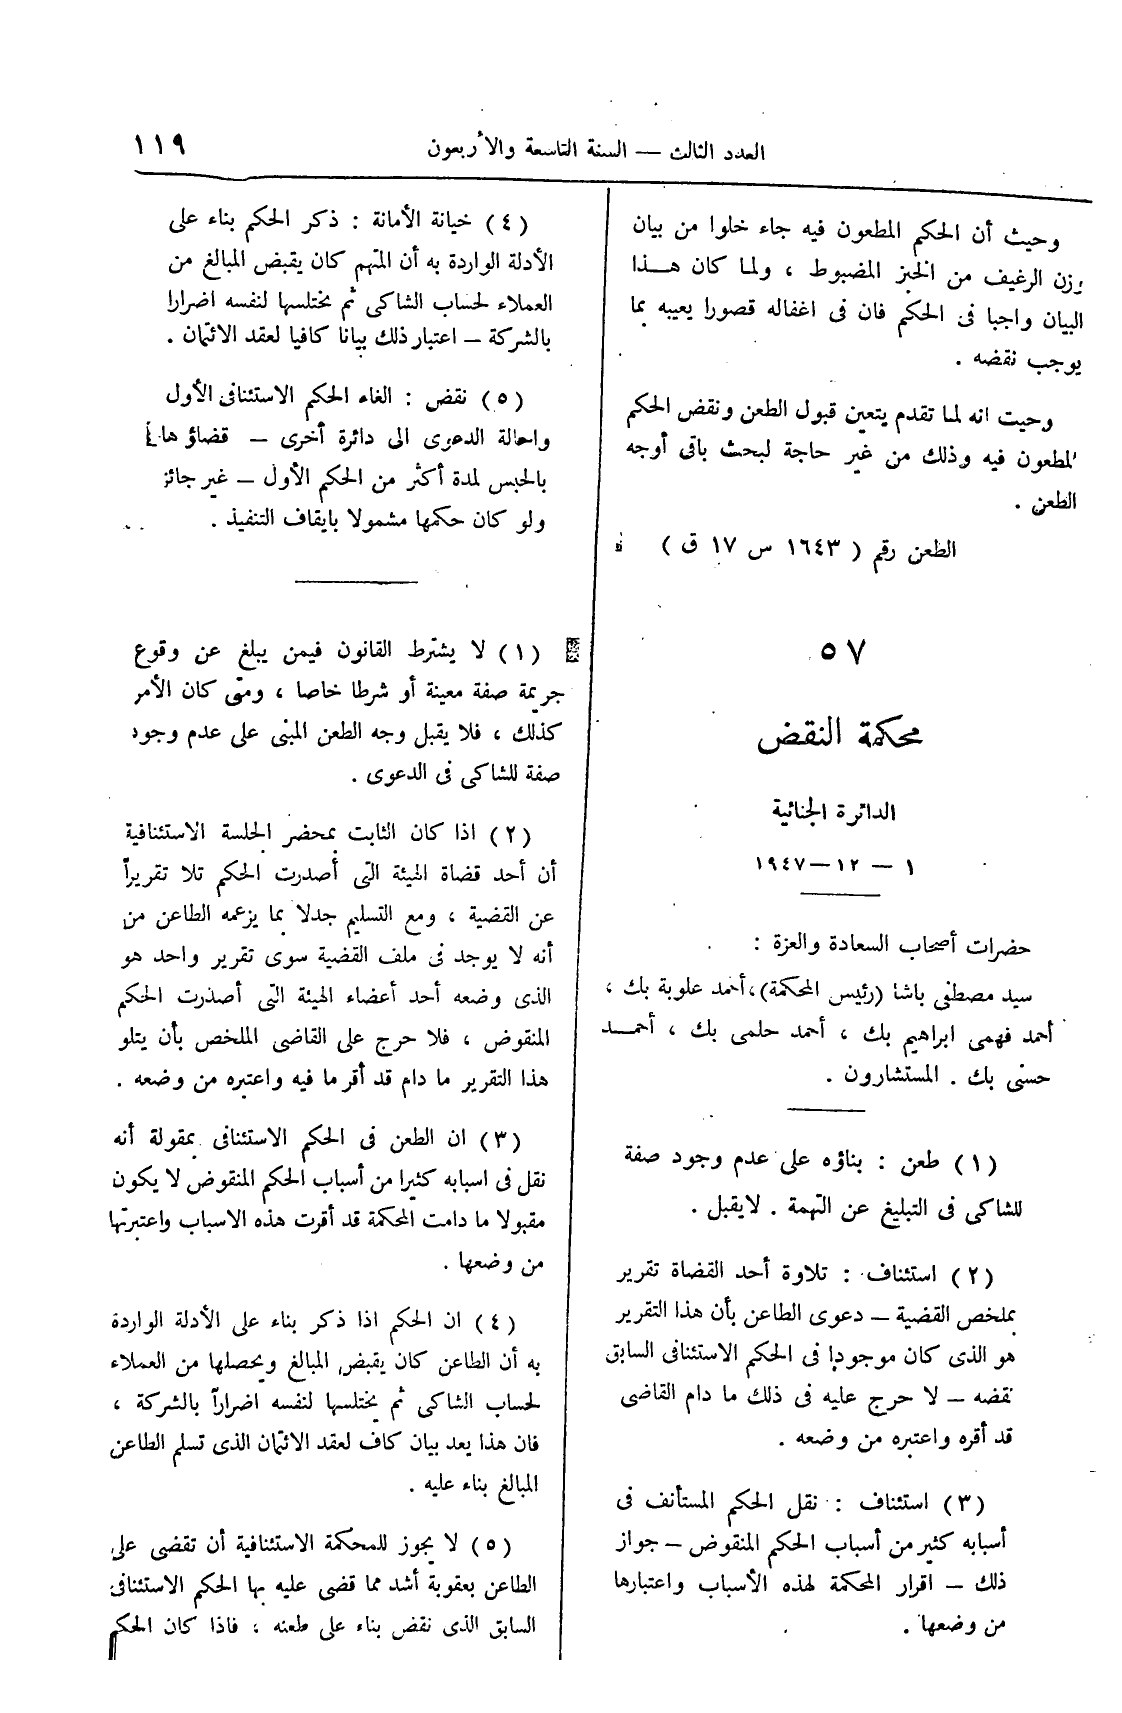 العدد الثالث — السنة التاسعة والأربعون ١١٩
وحيث أن الحكم المطعون فيه جاء خلوا من بيان
وزن الرغيف من الخبز المضبوط ، ولما كان هـذا
البيان واجبا فى الحكم فان فى اغفاله قصورا يعيبه بما
يوجب نقضه .
وحيث انه لما تقدم يتعين قبول الطعن ونقض الحكم
المطعون فيه وذلك من غير حاجة لبحث باقى أوجه
الطعن .
الطعن رقم ( ١٦٤٣ س ١٧ ق )
٥٧
محكمة النقض
الدائرة الجنائية
١ — ١٢ — ١٩٤٧
حضرات أصحاب السعادة والعزة :
سيد مصطفى باشا (رئيس المحكمة)، أحمد علوبة بك ،
أحمد فهمى ابراهيم بك ، أحمد حلمى بك ، أحمـد
حسنى بك . المستشارون .
(١) طعن : بناؤه على عدم وجود صفة
للشاكى فى التبليغ عن التهمة . لايقبل .
(٢) استئناف : تلاوة أحد القضاة تقرير
بملخص القضية — دعوى الطاعن بأن هذا التقرير
هو الذى كان موجودا فى الحكم الاستئنافى السابق
نقضه — لا حرج عليه فى ذلك ما دام القاضى
قد أقره واعتبره من وضعه .
(٣) استئناف : نقل الحكم المستأنف فى
أسبابه كثير من أسباب الحكم المنقوض — جواز
ذلك — اقرار المحكمة لهذه الأسباب واعتبارها
من وضعها .
(٤) خيانة الأمانة : ذكر الحكم بناء على
الأدلة الواردة به أن المتهم كان يقبض المبالغ من
العملاء لحساب الشاكى ثم يختلسها لنفسه اضرارا
بالشركة — اعتبار ذلك بيانا كافيا لعقد الائتمان .
(٥) نقض : الغاء الحكم الاستئنافى الأول
واحالة الدعوى الى دائرة أخرى — قضاؤها
بالحبس لمدة أكثر من الحكم الأول — غير جائز
ولو كان حكمها مشمولا بايقاف التنفيذ .
(١) لا يشترط القانون فيمن يبلغ عن وقوع
جريمة صفة معينة أو شرطا خاصا ، ومتى كان الأمر
كذلك ، فلا يقبل وجه الطعن المبنى على عدم وجود
صفة للشاكى فى الدعوى .
(٢) اذا كان الثابت بمحضر الجلسة الاستئنافية
أن أحد قضاة الهيئة التى أصدرت الحكم تلا تقريراً
عن القضية ، ومع التسليم جدلا بما يزعمه الطاعن من
أنه لا يوجد فى ملف القضية سوى تقرير واحد هو
الذى وضعه أحد أعضاء الهيئة التى أصدرت الحكم
المنقوض ، فلا حرج على القاضى الملخص بأن يتلو
هذا التقرير ما دام قد أقر ما فيه واعتبره من وضعه .
(٣) ان الطعن فى الحكم الاستئنافى بمقولة أنه
نقل فى اسبابه كثيرا من أسباب الحكم المنقوض لا يكون
مقبولا ما دامت المحكمة قد أقرت هذه الاسباب واعتبرتها
من وضعها .
(٤) ان الحكم اذا ذكر بناء على الأدلة الواردة
به أن الطاعن كان يقبض المبالغ ويحصلها من العملاء
لحساب الشاكى ثم يختلسها لنفسه اضراراً بالشركة ،
فان هذا يعد بيان كاف لعقد الائتمان الذى تسلم الطاعن
المبالغ بناء عليه .
(٥) لا يجوز للمحكمة الاستئنافية أن تقضى على
الطاعن بعقوبة أشد مما قضى عليه بها الحكم الاستئنافى
السابق الذى نقض بناء على طعنه ، فاذا كان الحكم